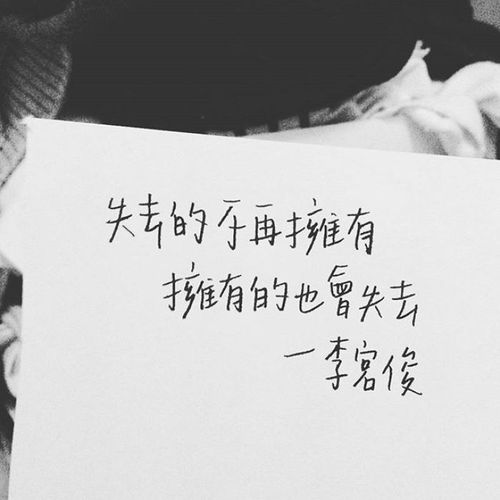 失去的不再擁有
擁有的也會失去
一李宮俊